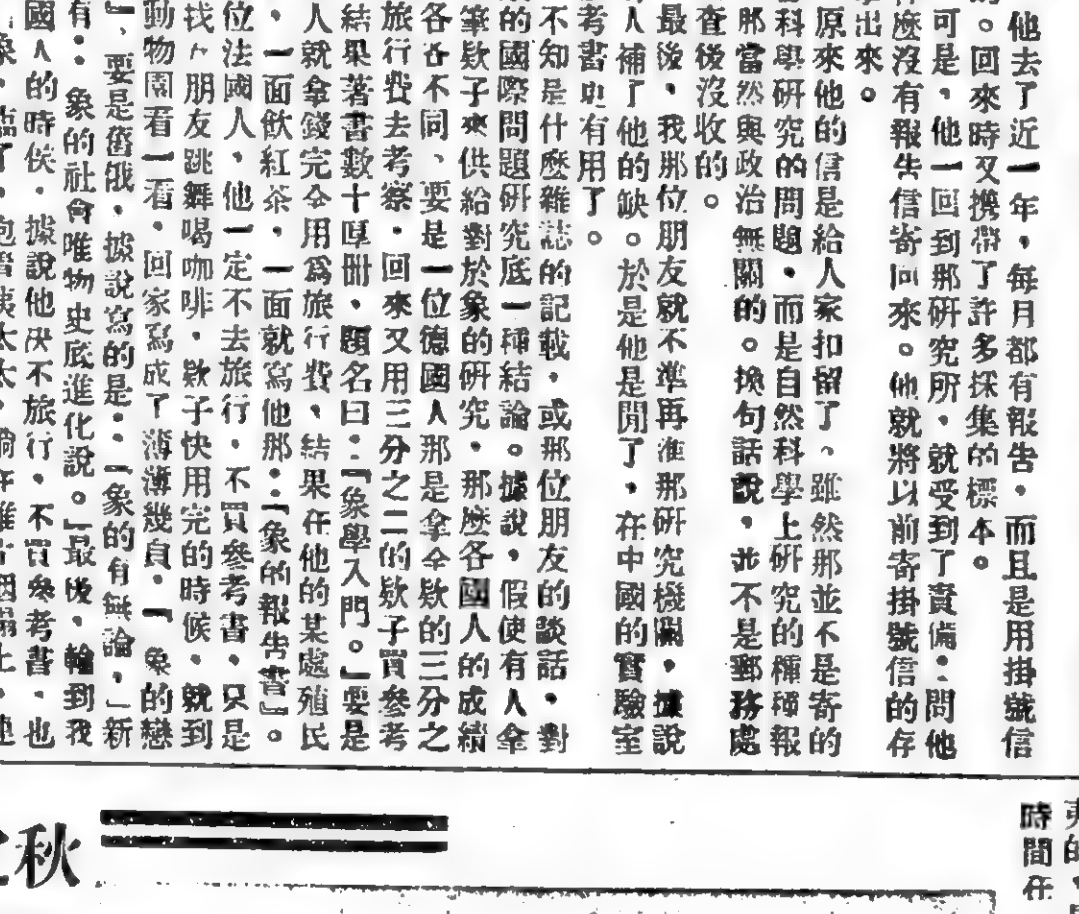 他去了近一年，每月都有報告，而且是用掛號信
的。回來時又携帶了許多採集的標本。
可是，他一回到那研究所，就受到了責備：問他
什麼沒有報告信寄回來。他就將以前寄掛號信的存
出來。
原來他的信是給人家扣留了。雖然那並不是寄的
科學研究的問題，而是自然科學上研究的種種報
那當然與政治無關的。換句話說，並不是郵務處
查後沒收的。
最後，我那位朋友就不準再進那研究機關，據說
人補了他的缺。於是他是閒了，在中國的實驗室
考書更有用了。
不知是什麼雜誌的記載，或那位朋友的談話，對
的國際問題研究底一種結論。據說，假使有人拿
筆欵子來供給對於象的研究，那麼各國人的成績
各各不同、要是一位德國人那是拿全欵的三分之
旅行費去考察，回來又用三分之二的欵子買參考
結果著書數十厚册，題名曰：「象學入門。」要是
人就拿錢完全用爲旅行費，結果在他的某處殖民
，一面飲紅茶，一面就寫他那：「象的報告書」。
位法國人，他一定不去旅行，不買參考書，只是
找朋友跳舞喝咖啡，欵子快用完的時候，就到
動物園看一看，回家寫成了薄薄幾頁，「象的戀
」，要是舊俄，據說寫的是：「象的有無論，」新
有：象的社會唯物史底進化說。」最後，輪到我
國人的時候，據說他決不旅行，不買參考書，也
秋
時間在